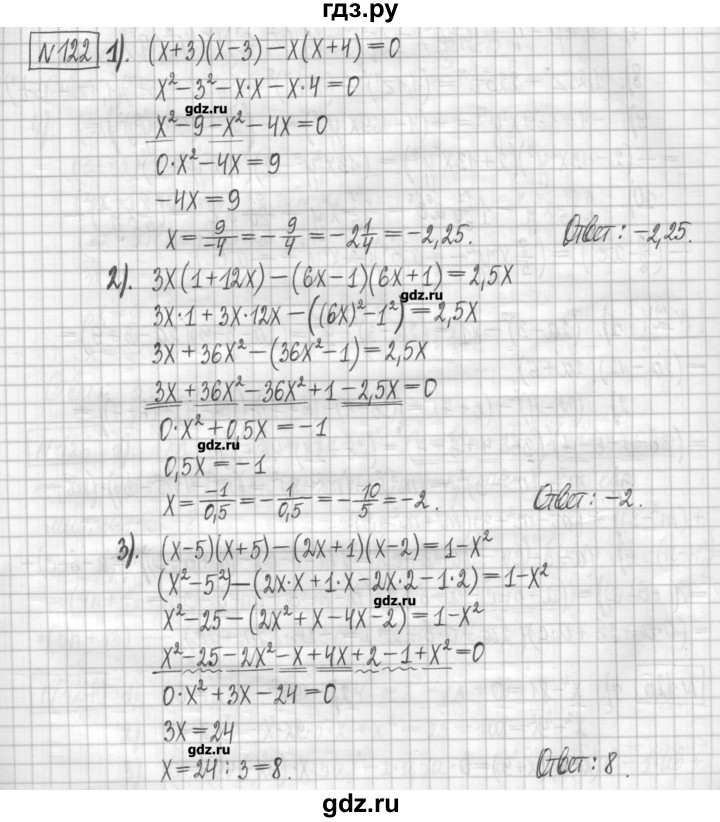 гдз.ру
№122 1). (x+3)(x-3)-x(x+4)=0
x²-3²-x·x-x·4=0
gdz.ru
x²-9-x²-4x=0
0·x²-4x=9
-4x=9
x=9/-4=-9/4=-2 1/4=-2,25. Ответ: -2,25.
2). 3x(1+12x)-(6x-1)(6x+1)=2,5x
gdz.ru
3x·1+3x·12x-((6x)²-1²)=2,5x
3x+36x²-(36x²-1)=2,5x
3x+36x²-36x²+1-2,5x=0
0·x²+0,5x=-1
gdz.ru
0,5x=-1
x=-1/0,5=-1/0,5=-10/5=-2. Ответ: -2.
3). (x-5)(x+5)-(2x+1)(x-2)=1-x²
(x²-5²)-(2x·x+1·x-2x·2-1·2)=1-x²
gdz.ru
x²-25-(2x²+x-4x-2)=1-x²
x²-25-2x²-x+4x+2-1+x²=0
0·x²+3x-24=0
3x=24
gdz.ru
x=24:3=8. Ответ: 8.
gdz.ru